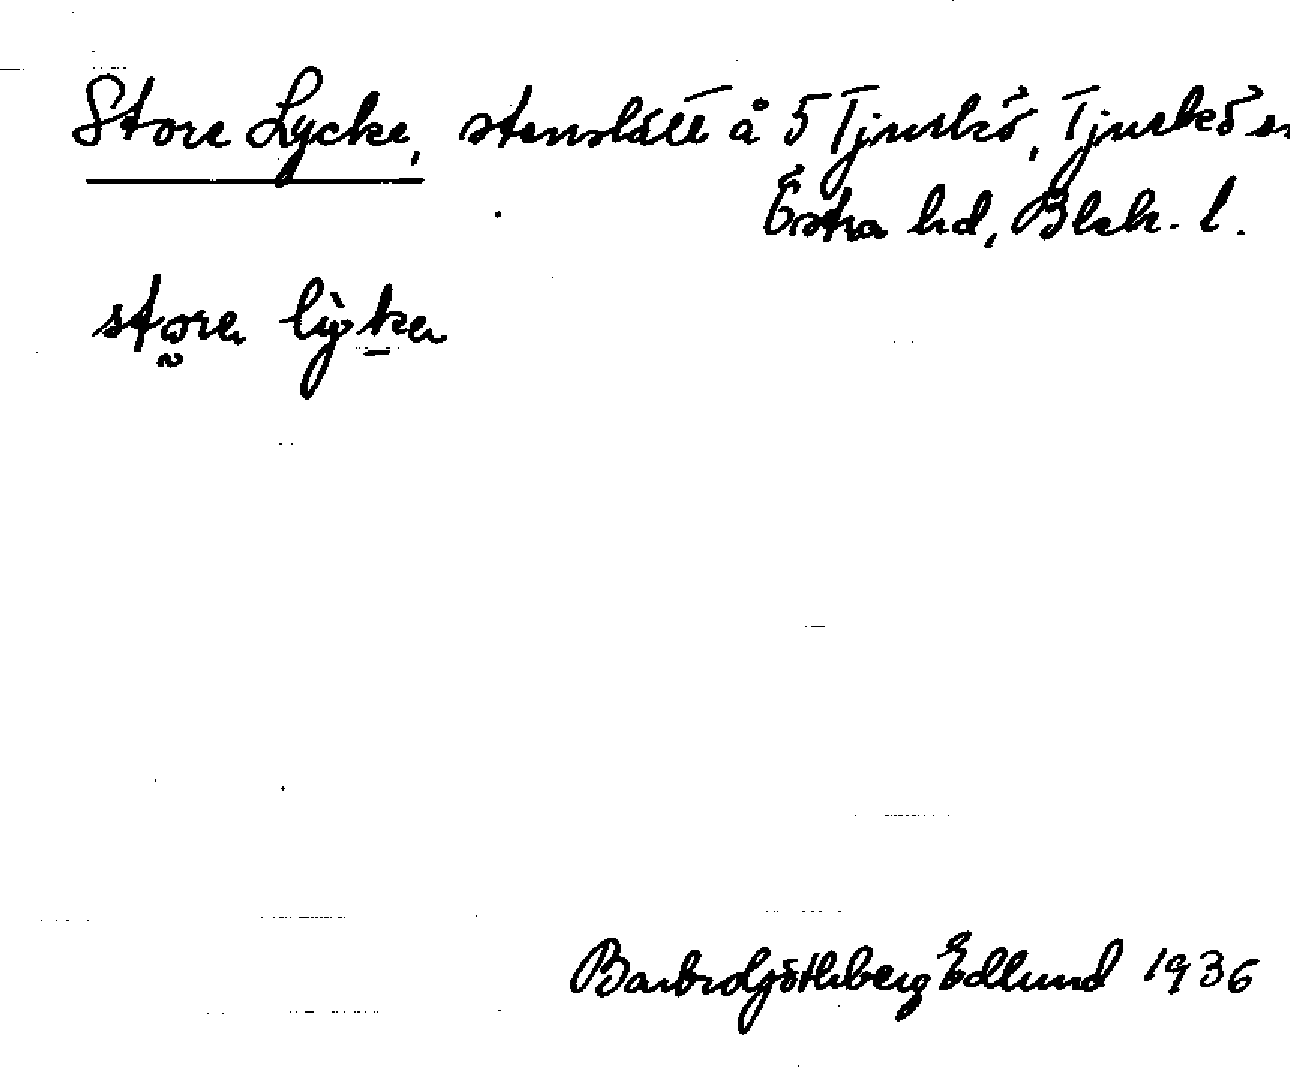 Store Lycke, stenslätt å 5 Tjurkö, Tjurkö sn
Östra hd, Blek. l.
store lỳka
Barbro Götherberg Edlund 1936